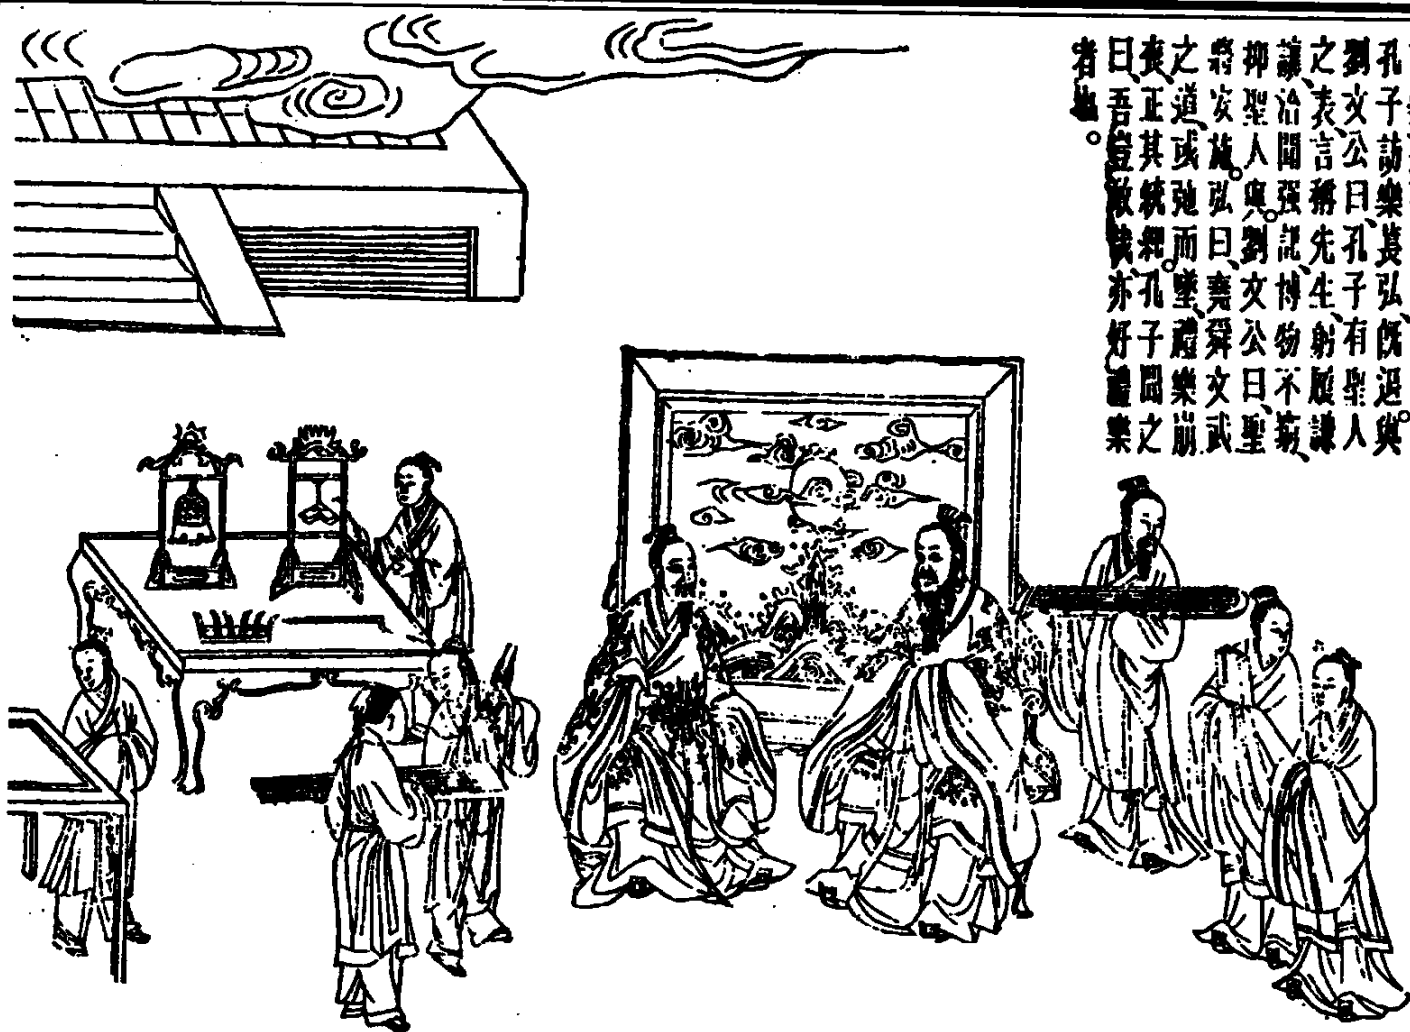 孔子訪樂萇弘、旣退。與
劉文公曰、孔子有聖人
之表、言稱先生、躬履謙
讓、洽聞强記、博物不窮、
抑聖人與。劉文公曰、聖
將安施。弘曰、堯舜文武
之道、或弛而墜、禮樂崩
喪、正其統紀。孔子聞之
曰、吾豈敢哉、亦好禮樂
者也。